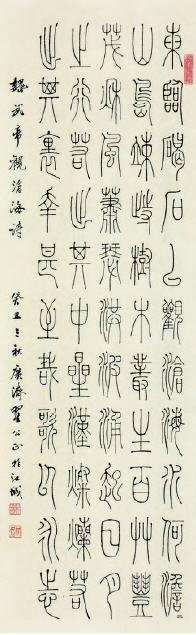 東臨碣石以觀滄海水何澹=
山島竦峙樹木叢生百艸豐
茂秌風蕭瑟洪波涌起日月
之行若出其中星漢燦爛若
出其裏幸甚至哉歌以永志
魏武帝觀滄海詩 癸丑三秋廣濟公正於江城